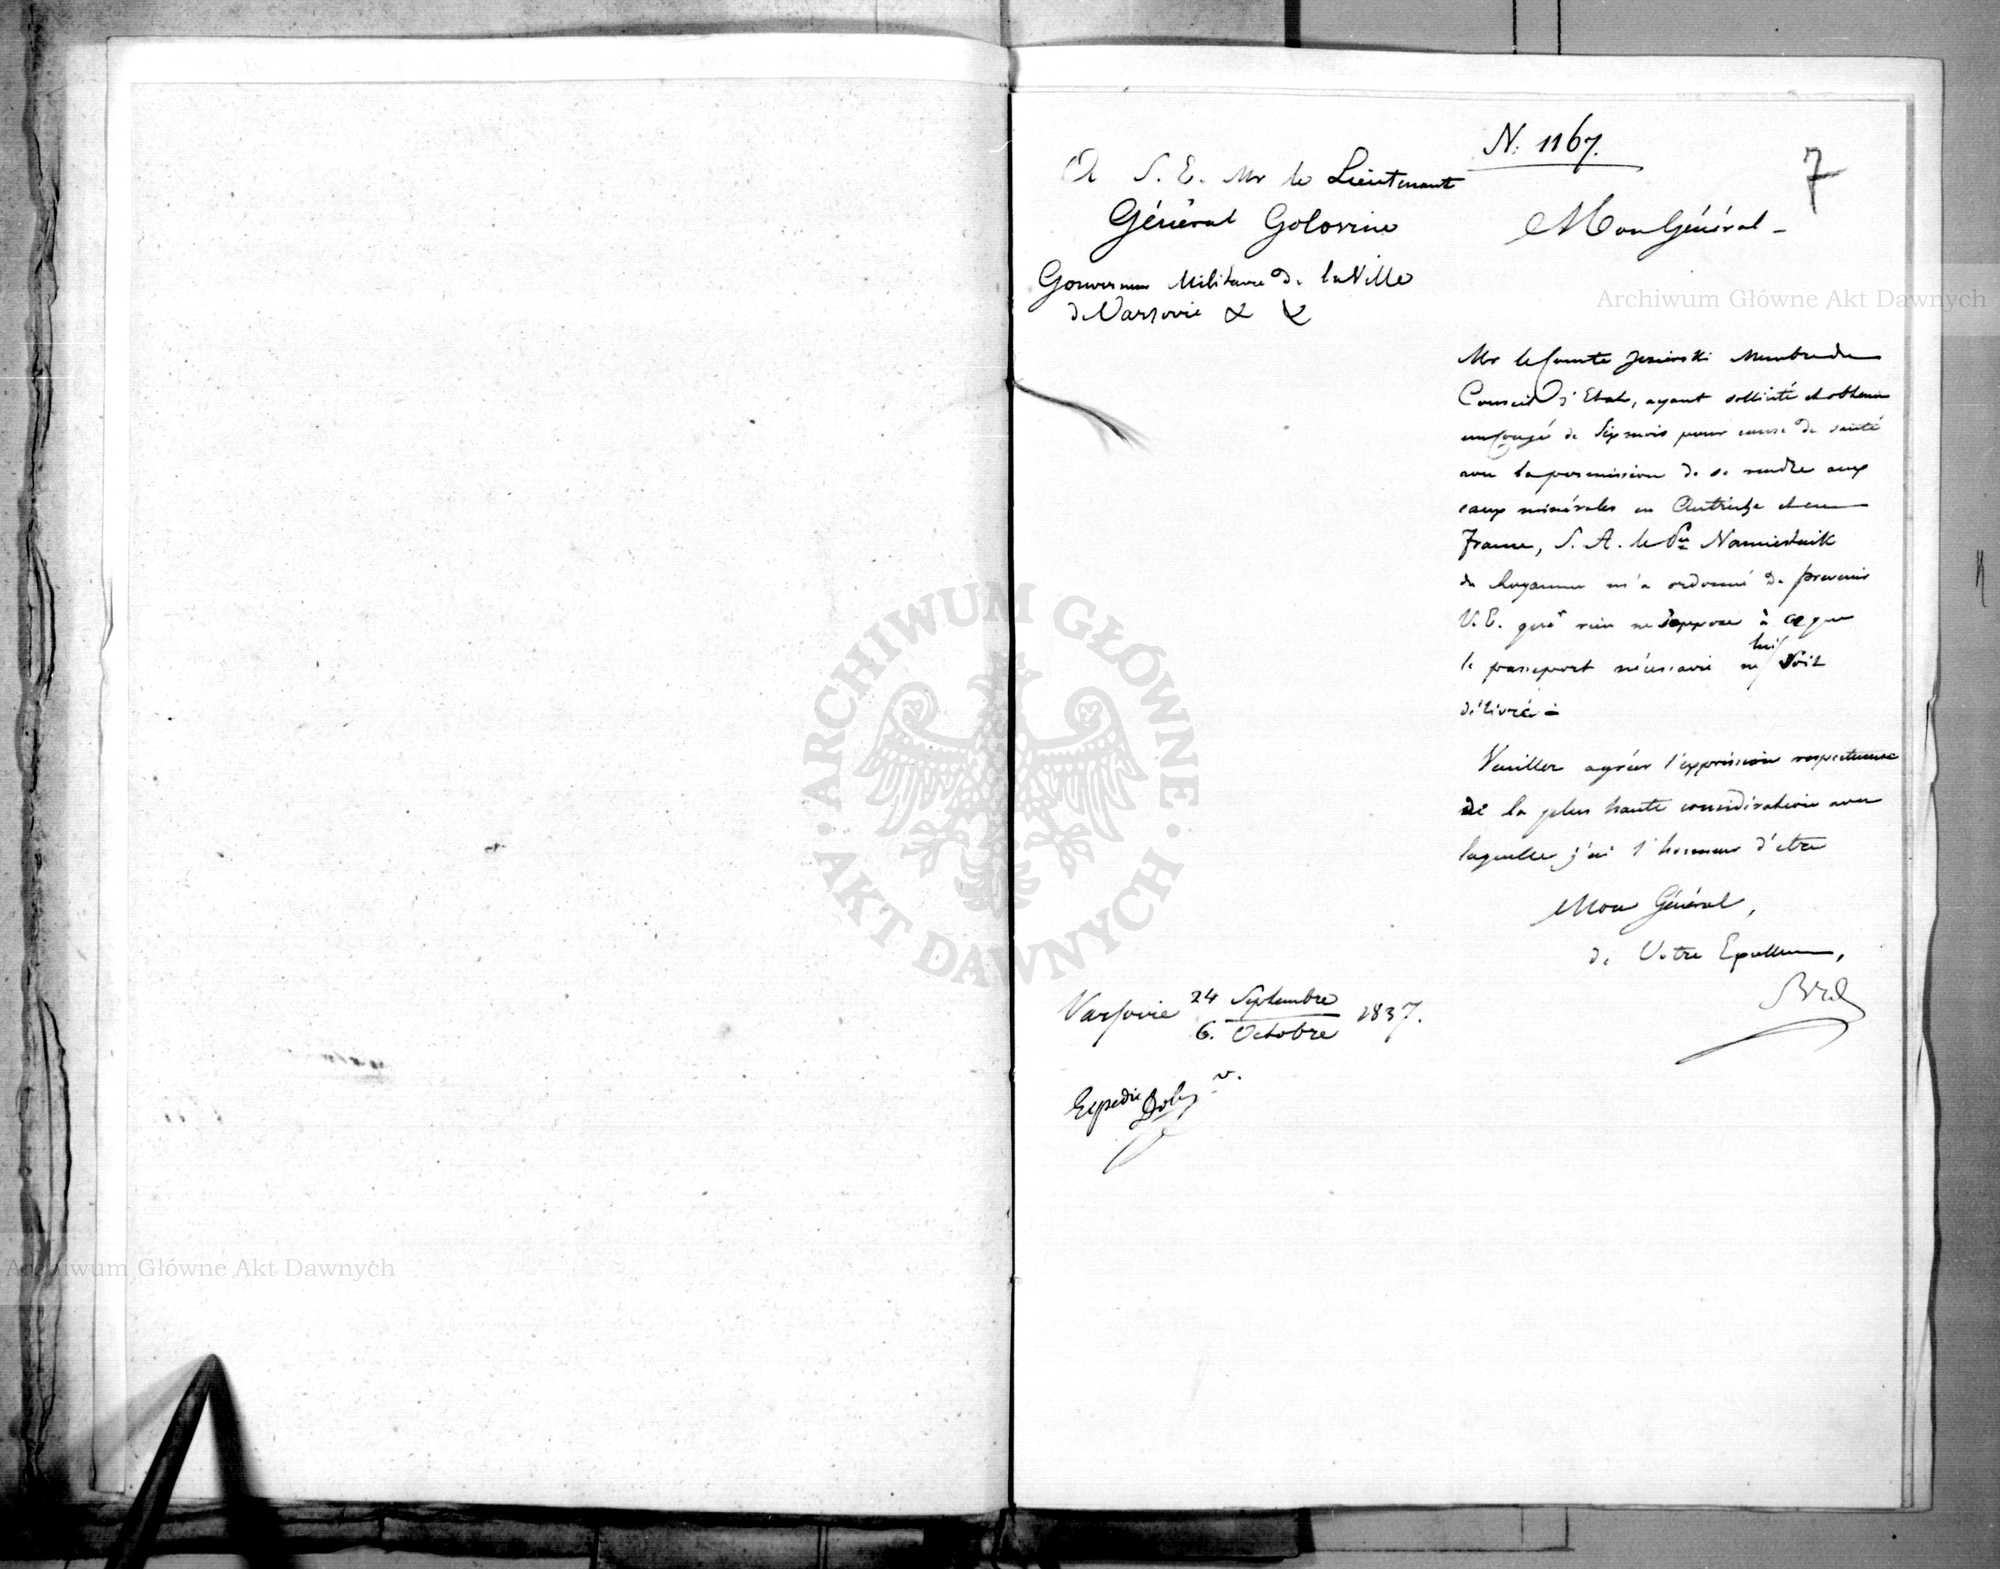 N. 1167.
7
A S. E. Mr le Lieutenant
Général Golovine
Gouverneur Militaire de la Ville
de Varsovie & &
Mon Général -
Mr le Comte Jezierski Membre du
Conseil d'Etat, ayant sollicité et obtenu
un Congé de Six mois pour cause de santé
avec la permission de se rendre aux
eaux minérales en Autriche et en
France, S. A. le Pce Namiestnik
du Royaume m'a ordonné de prévenir
V. E. que rien ne s'oppose à ce que
le passeport nécessaire lui soit
délivré -
Veuillez agréer l'expression respectueuse
de la plus haute considération avec
laquelle j'ai l'honneur d'etre
Mon Général,
de Votre Excellence,
Varsovie 24 Septembre
6. Octobre 1837.
Expedié
Archiwum Główne Akt Dawnych
ARCHIWUM GŁÓWNE
AKT DAWNYCH
Archiwum Główne Akt Dawnych